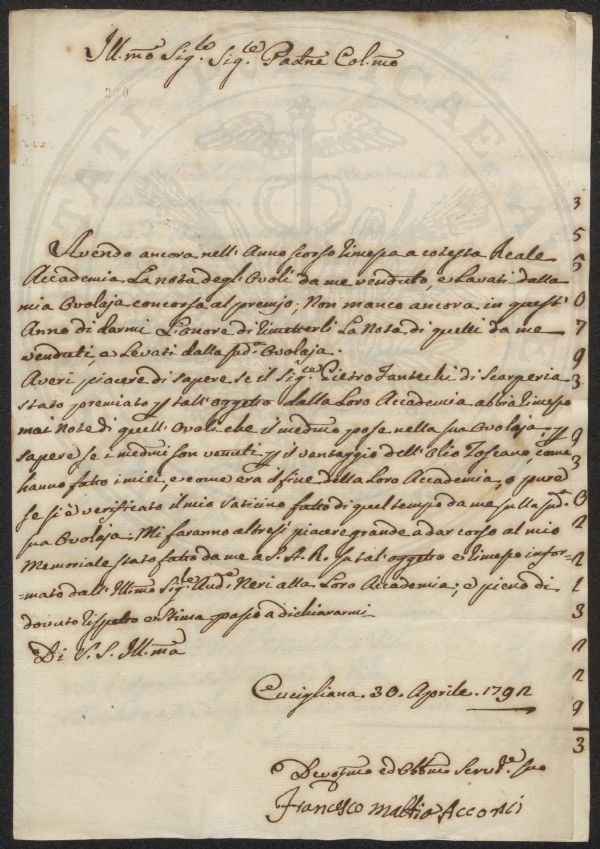 Ill.mo Sig.re Sig.re Padne Col.mo
220
Avendo ancora nell'Anno scorso rimesa a cotesta Reale
Accademia La nota degli Ovoli da me venduti, e Levati dalla
mia Ovolaja concorsa al premio; Non manco ancora in quest'
Anno di darmi L'onore di rimetterli La Nota di quelli da me
venduti, e Levati dalla sud.a Ovolaja.
Averi piacere di sapere se il Sig.re Pietro Fantechi di Scarperia
stato premiato p tall'oggetto dalla Loro Accademia abbia rimeso
mai Note di quell'Ovoli che il medmo pose nella sua Ovolaja; p
sapere, se i medmi son venuti p il vantaggio dell'Olio Toscano, come
hanno fatto i miei, e come era il fine della Loro Accademia, o pure
se si è verificato il mio Vaticino fatto di quel tempo da me sulla sud.a
sua Ovolaja; Mi faranno altresi piacere grande a dar corso al mio
Memoriale stato fatto da me a S. A. R. su tal'oggetto e rimeso infor-
-mato dall'Illmo Sig.re Aud.e Neri alla Loro Accademia; e pieno di
dovuto rispetto e stima paso a dichiararmi
Di V. S. Ill.ma
Cucigliana. 30. Aprile. 1792
Devotmo ed Obbmo Serv.re suo
Francesco Mattio Acconci
3
5
5
0
7
9
3
9
3
0
2
2
1
3
2
2
9
3